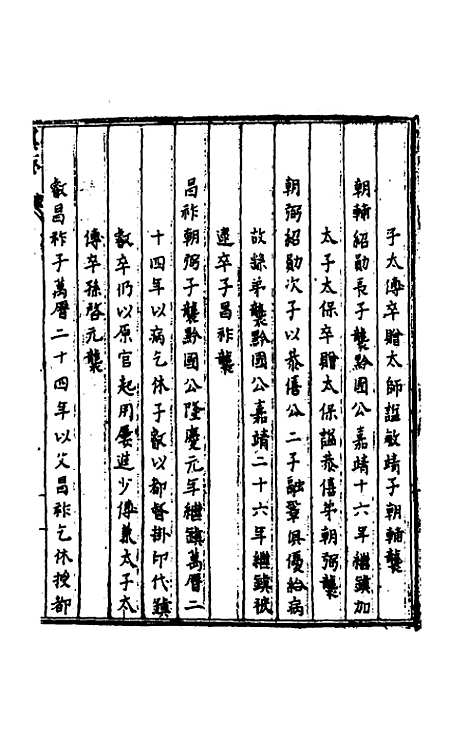 子太傅卒贈太師謚敏靖子朝輔襲
朝輔紹勛長子襲黔國公嘉靖十六年繼鎮加
太子太保卒贈太保謚恭僖弟朝弼襲
朝弼紹勛次子以恭僖公二子融鞏俱優給病
故錄弟襲黔國公嘉靖二十六年繼鎮被
逮卒子昌祚襲
昌祚朝弼子襲黔國公隆慶元年繼鎮萬曆二
十四年以病乞休子叡以都督掛印代鎮
叡卒仍以原官起用屢進少傅兼太子太
傅卒孫啓元襲
叡昌祚子萬曆二十四年以父昌祚乞休授都